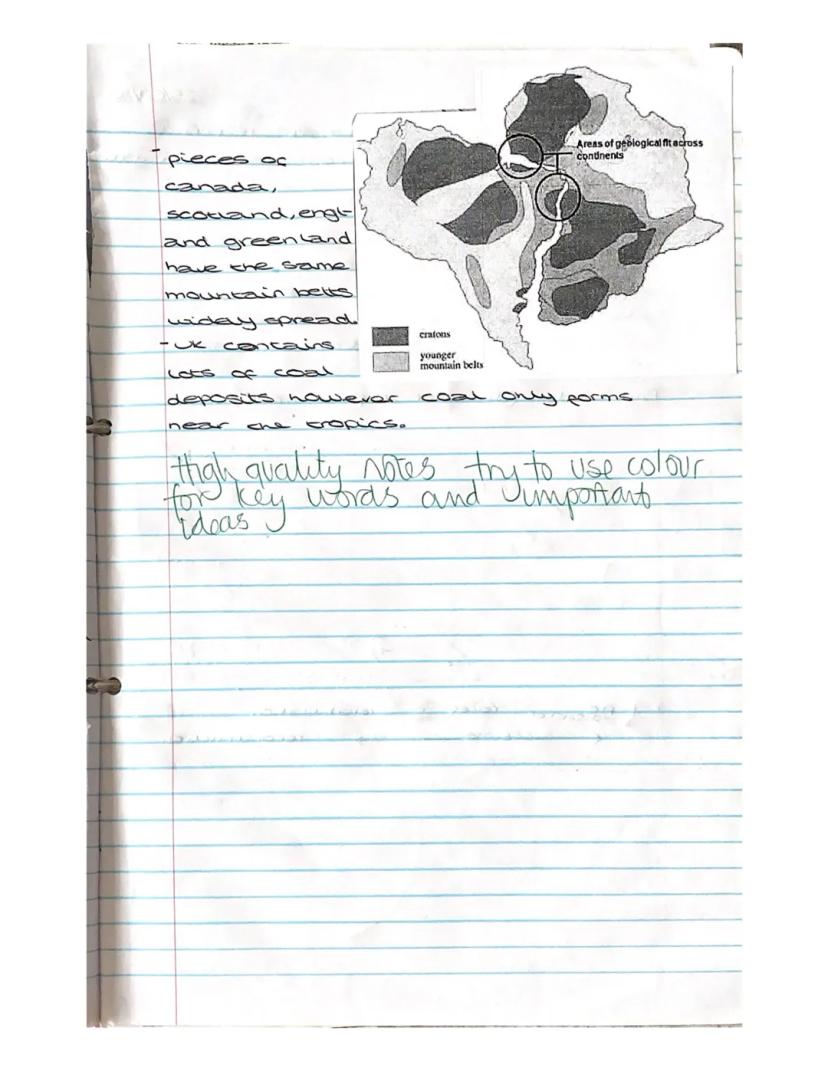 - pieces of
canada,
scotland, engl-
and greenland
have the same
mountain belts
widley spread.
- UK contains
lots of coal
deposits however coal only forms
near the tropics.
Areas of geological fit across
continents
cratons
younger
mountain belts
High quality notes try to use colour
for key words and important
ideas